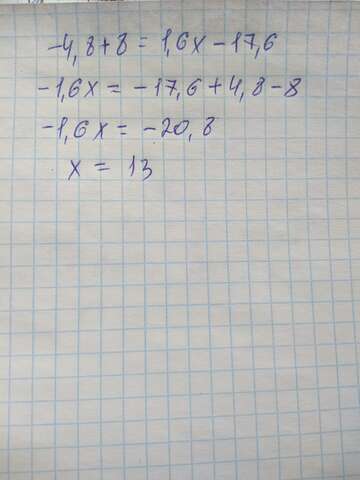 -4,8+8 = 1,6x - 17,6
-1,6x = -17,6 + 4,8 - 8
-1,6x = -20,8
x = 13